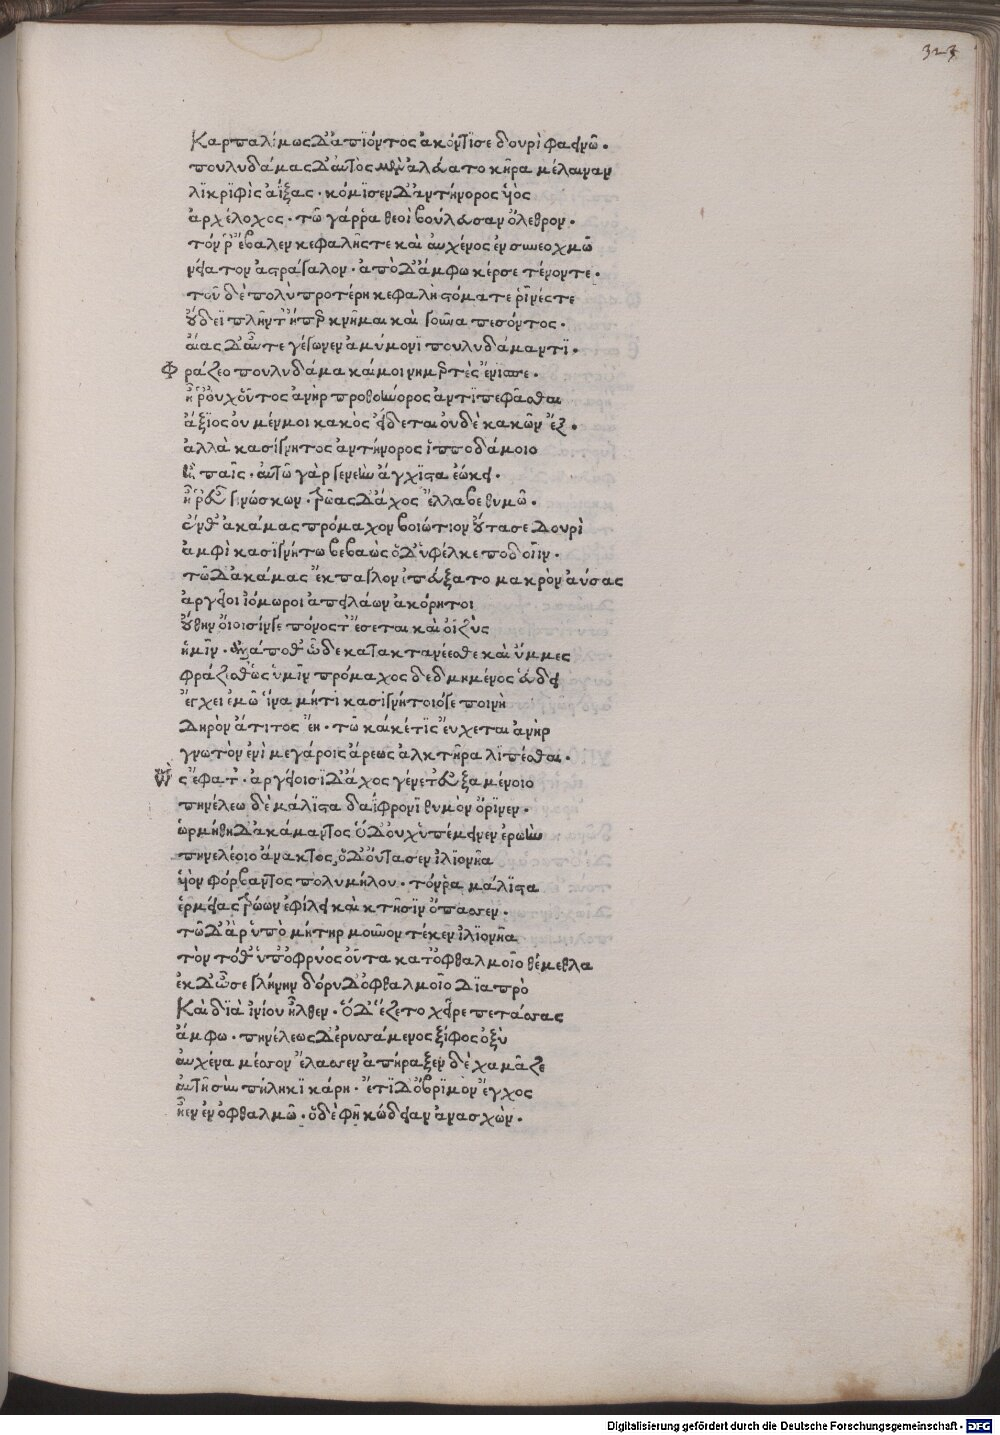 323
Καρπαλίμως δ᾽ ἀπϊόντος ἀκόντϊσε δουρὶ φαεινῶ.
πουλυδάμας δ᾽ αὐτὸς μὲν ἀλεύατο κῆρα μέλαιναν
λϊκρϊφὶς ἀΐξας. κόμϊσεν δ᾽ ἀντήνορος ὑὸς
ἀρχέλοχος. τῶ γάρ ῥα θεοὶ βούλευσαν ὄλεθρον.
τόν ῥ᾽ ἔβαλεν κεφαλῆς τε καὶ αὐχένος ἐν συνεοχμῶ
νείατον ἀστράγαλον. ἀπὸ δ᾽ ἄμφω κέρσε τένοντε.
τοῦ δὲ πολὺ προτέρη κεφαλὴ στόμα τε ῥῖνές τε
οὔδεϊ πλῆντ᾽ ἤπερ κνῆμαι καὶ γοῦνα πεσόντος.
αἴας δ᾽ αὖτε γέγωνεν ἀμύμονϊ πουλυδάμαντϊ.
Φράζεο πουλυδάμα καί μοι νημερτὲς ἔνϊσπε.
ἦ ῥ᾽ οὐχ οὗτος ἀνὴρ προθοήνορος ἀντϊπεφᾶσθαι
ἄξϊος οὐ μέν μοι κακὸς εἴδεται οὐδὲ κακῶν ἔξ.
ἀλλὰ κασίγνητος ἀντήνορος ἱπποδάμοιο
ἢ παῖς. αὐτῶ γὰρ γενεὴν ἄγχϊστα ἐώκει.
ἦ ῥ᾽ εὖ γϊνώσκων. τρῶας δ᾽ ἄχος ἔλλαβε θυμῶ.
ἔνθ᾽ ἀκάμας πρόμαχον βοιώτιον οὔτασε δουρὶ
ἀμφὶ κασϊγνήτω βεβαὼς ὁ δ᾽ ὕφέλκε ποδοῖϊν.
τῶ δ᾽ ἀκάμας ἔκπαγλον ἐπεύξατο μακρὸν ἀΰσας
ἀργεῖοι ἰόμωροι ἀπειλάων ἀκόρητοι
οὔθην οἴοισίν γε πόνος τ᾽ ἔσεται καὶ ὀϊζὺς
ἡμῖν. ἀλλά ποθ᾽ ὧδε κατακτανέεσθε καὶ ὔμμες
φράζεσθ᾽ ὡς ὑμῖν πρόμαχος δεδμημένος εὕδει
ἔγχει ἐμῶ ἵνα μήτϊ κασιγνήτοιό γε ποινὴ
δηρὸν ἄτιτος ἔη. τῶ καί κέ τϊς εὔχεται ἀνὴρ
γνωτὸν ἐνὶ μεγάροις ἄρεως ἀλκτῆρα λϊπέσθαι.
Ὣς ἔφατ᾽. ἀργείοισϊ δ᾽ ἄχος γένετ᾽ εὐξαμένοιο
πηνέλεω δὲ μάλϊστα δαΐφρονϊ θυμὸν ὄρϊνεν.
ὡρμήθη δ᾽ ἀκάμαντος ὁ δ᾽ οὐχ ὑπέμεινεν ἐρωὴν
πηνελέοιο ἄνακτος, ὁ δ᾽ οὔτασεν ἰλϊονῆα
ὑὸν φόρβαντος πολυμήλου. τόν ῥα μάλϊστα
ἑρμείας τρώων ἐφίλει καὶ κτῆσϊν ὄπασσεν.
τῶ δ᾽ ἂρ ὑπὸ μήτηρ μοῦνον τέκεν ἰλϊονῆα
τὸν τόθ᾽ ὑπ᾽ ὀφρύος οὖτα κατ᾽ ὀφθαλμοῖο θέμεθλα
ἐκ δ᾽ ὦσε γλήνην δόρυ δ᾽ ὀφθαλμοῖο δϊαπρὸ
Καὶ διὰ ἰνίου ἦλθεν. ὁ δ᾽ ἕζετο χεῖρε πετάσσας
ἄμφω. πηνέλεως δ᾽ ἐρυσσάμενος ξίφος ὀξὺ
αὐχένα μέσσον ἔλασσεν ἀπήραξεν δὲ χαμᾶζε
αὐτῆ σὺν πήληκϊ κάρη. ἔτϊ δ᾽ ὄβρϊμον ἔγχος
ἦεν ἐν ὀφθαλμῶ. ὁ δὲ φῆ κώδειαν ἀνασχὼν.
Digitalisierung gefördert durch die Deutsche Forschungsgemeinschaft - DFG